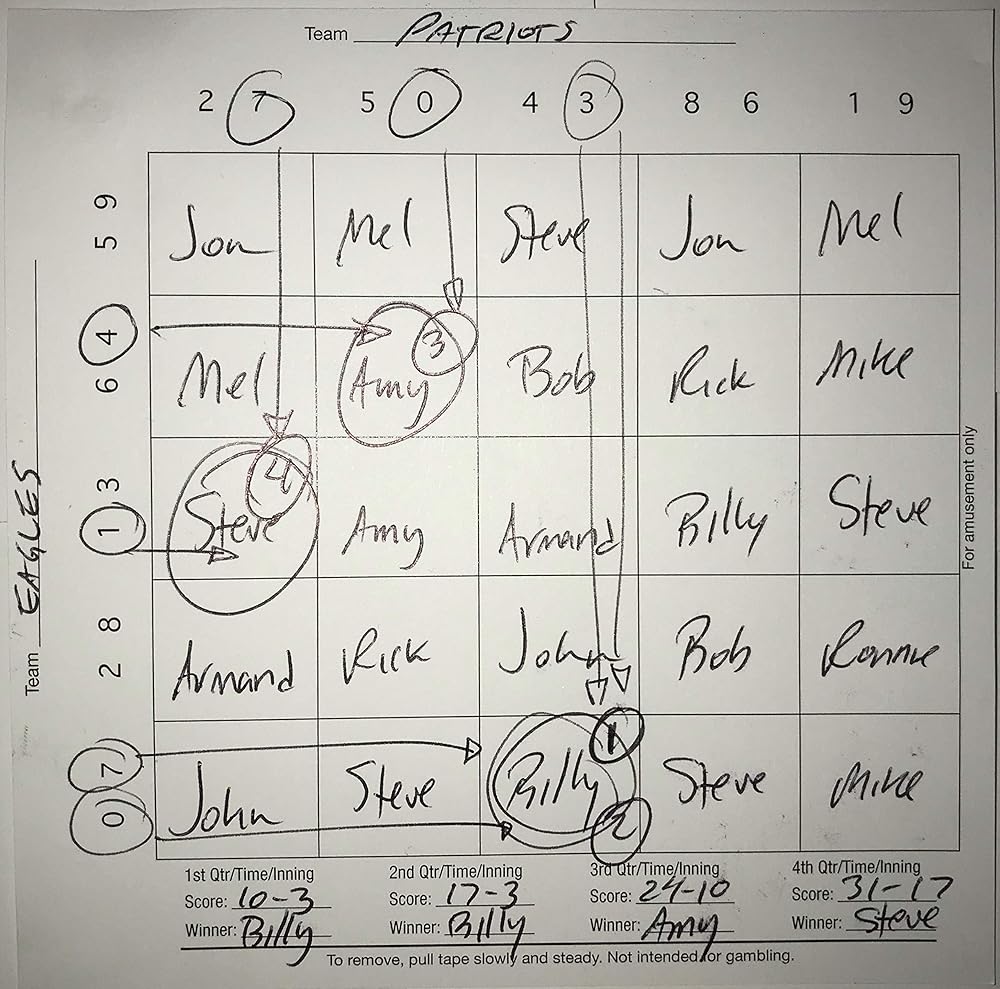 Team PATRIOTS
2 7 5 0 4 3 8 6 1 9
5 9 Jon Mel Steve Jon Mel
6 4 Mel Amy 3 Bob Rick Mike
1 3 Steve 4 Amy Armand Billy Steve
2 8 Armand Rick John Bob Ronnie
0 7 John Steve Billy 1 2 Steve Mike
Team EAGLES
For amusement only
1st Qtr/Time/Inning 2nd Qtr/Time/Inning 3rd Qtr/Time/Inning 4th Qtr/Time/Inning
Score: 10-3 Score: 17-3 Score: 24-10 Score: 31-17
Winner: Billy Winner: Billy Winner: Amy Winner: Steve
To remove, pull tape slowly and steady. Not intended for gambling.